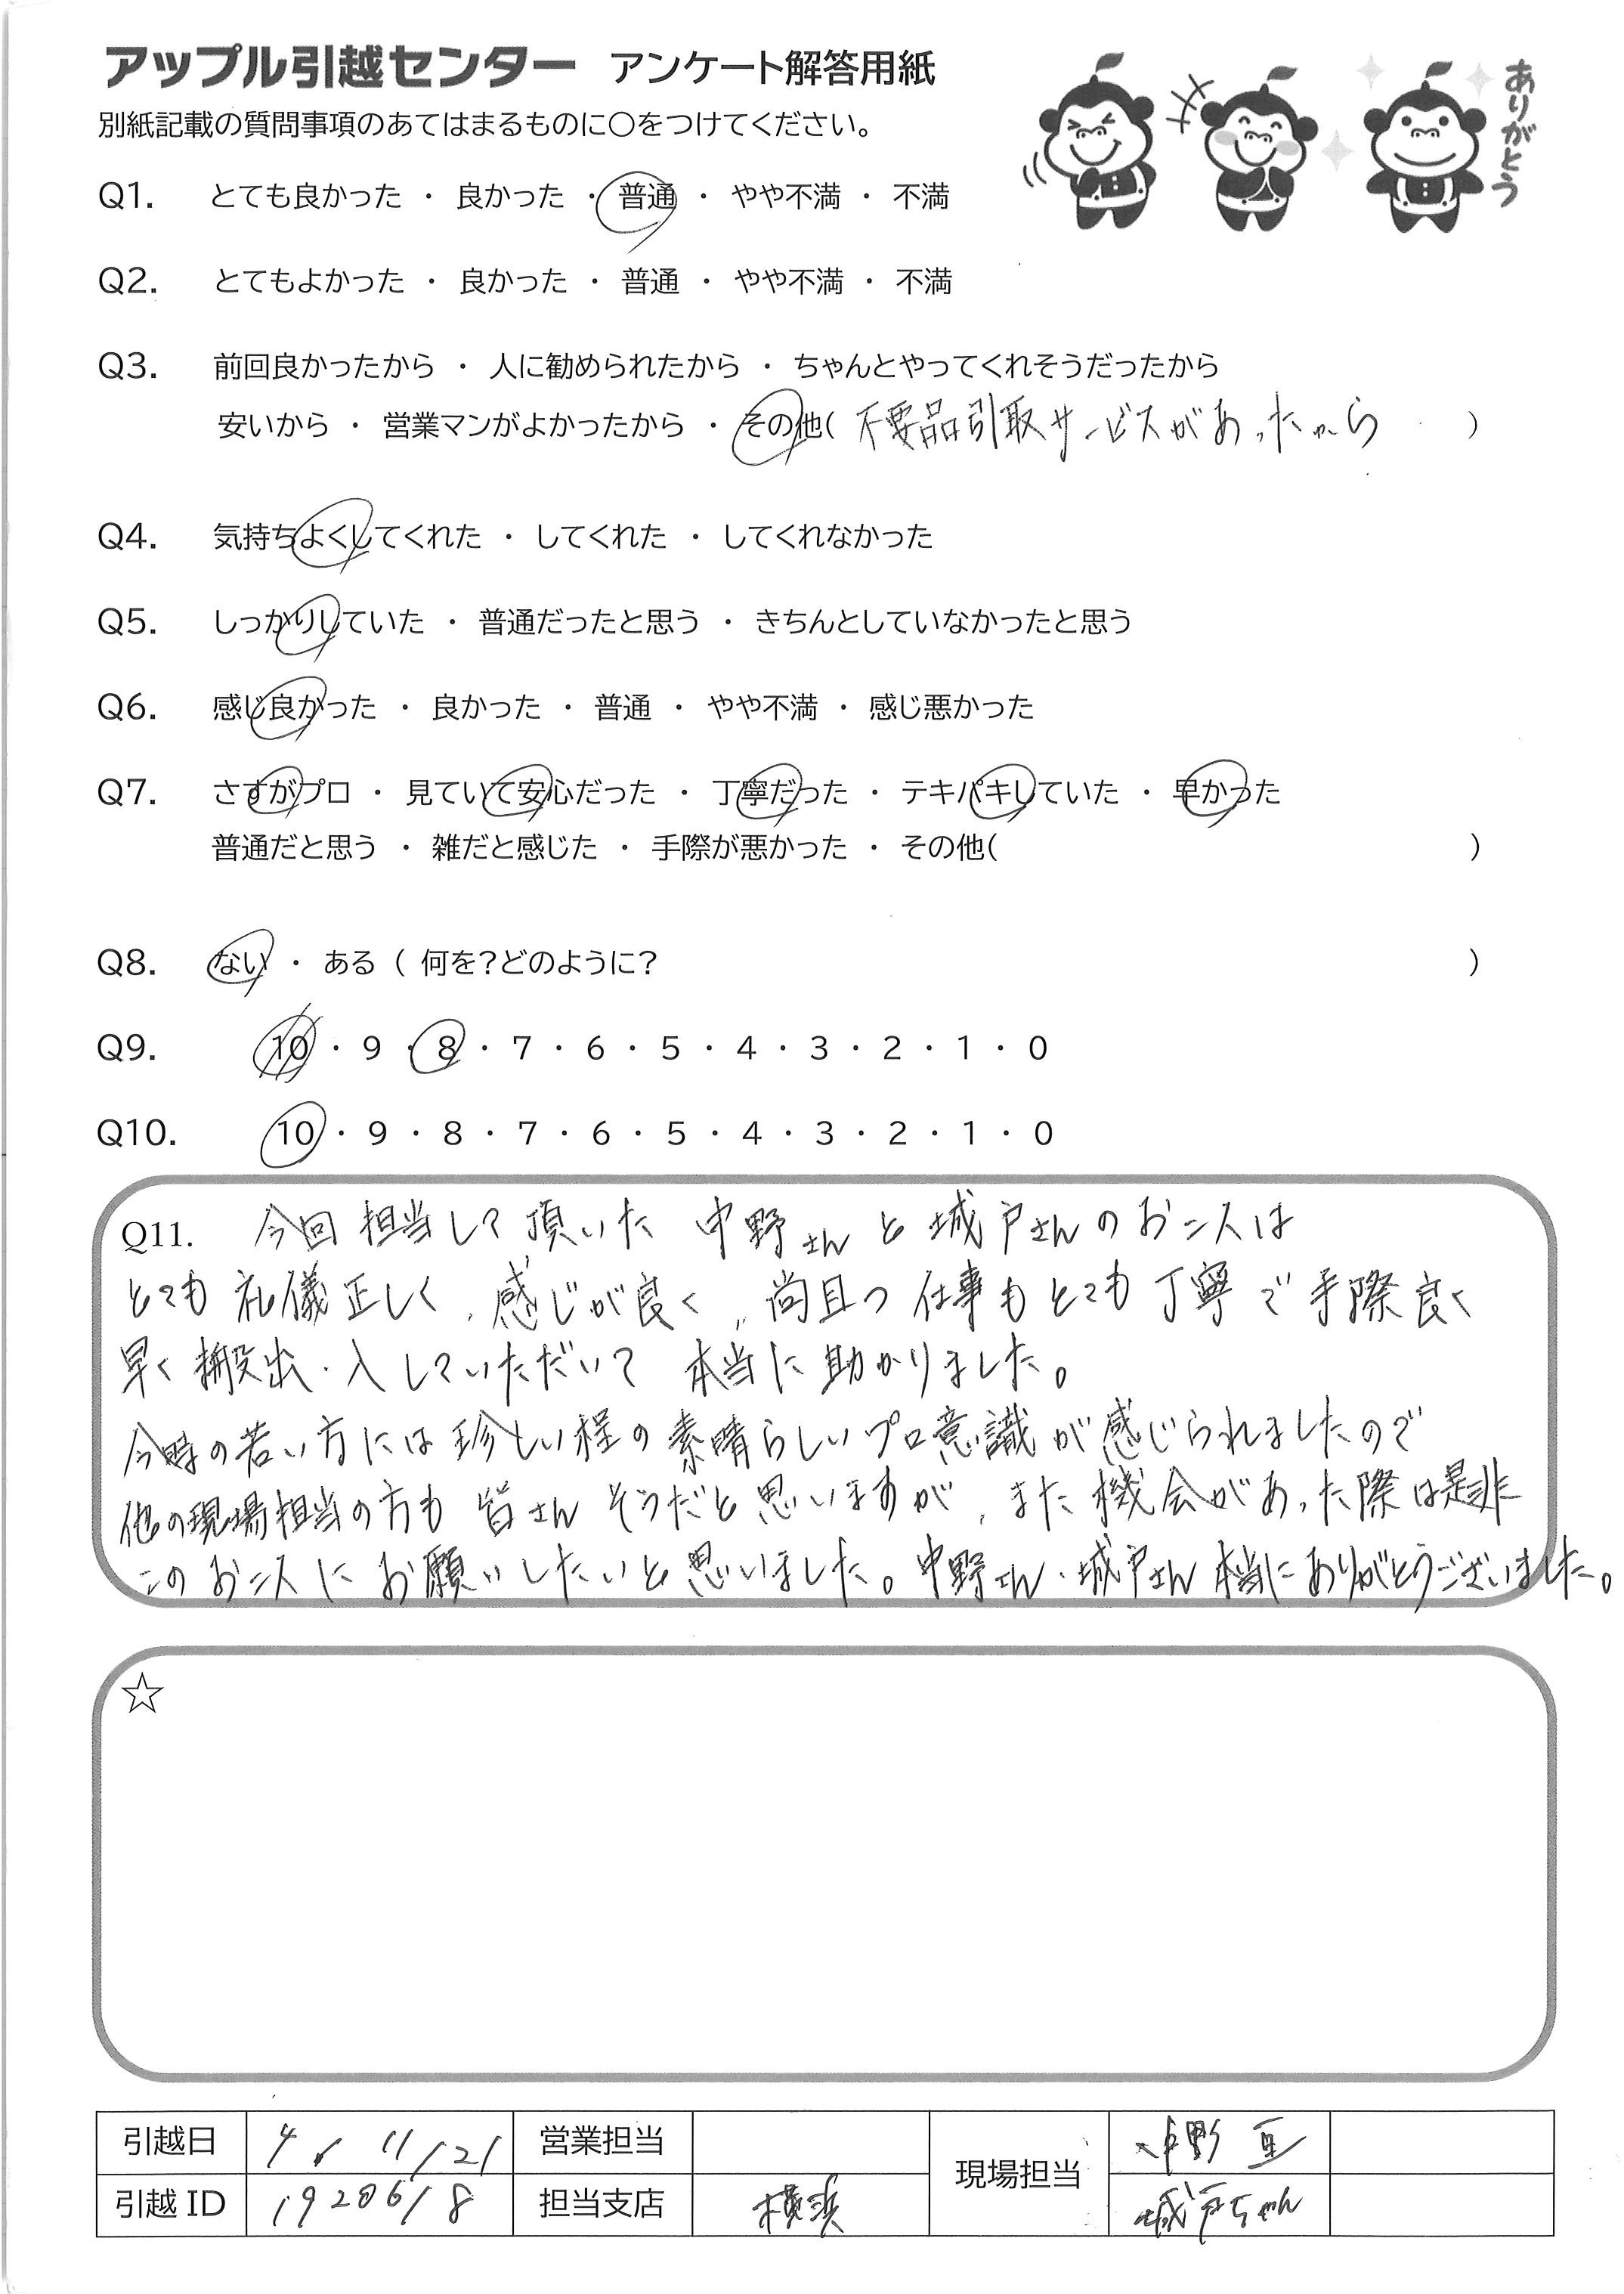 アップル引越センター アンケート解答用紙
ありがとう
別紙記載の質問事項のあてはまるものに○をつけてください。
Q1. とても良かった ・ 良かった ・ 普通 ・ やや不満 ・ 不満
Q2. とてもよかった ・ 良かった ・ 普通 ・ やや不満 ・ 不満
Q3. 前回良かったから ・ 人に勧められたから ・ ちゃんとやってくれそうだったから
安いから ・ 営業マンがよかったから ・ その他( 不要品引取サービスがあったから )
Q4. 気持ちよくしてくれた ・ してくれた ・ してくれなかった
Q5. しっかりしていた ・ 普通だったと思う ・ きちんとしていなかったと思う
Q6. 感じ良かった ・ 良かった ・ 普通 ・ やや不満 ・ 感じ悪かった
Q7. さすがプロ ・ 見ていて安心だった ・ 丁寧だった ・ テキパキしていた ・ 早かった
普通だと思う ・ 雑だと感じた ・ 手際が悪かった ・ その他( )
Q8. ない ・ ある ( 何を?どのように? )
Q9. 10 ・ 9 ・ 8 ・ 7 ・ 6 ・ 5 ・ 4 ・ 3 ・ 2 ・ 1 ・ 0
Q10. 10 ・ 9 ・ 8 ・ 7 ・ 6 ・ 5 ・ 4 ・ 3 ・ 2 ・ 1 ・ 0
Q11. 今回 担当して頂いた 中野さんと城戸さんのお二人は
とても礼儀正しく、感じが良く、尚且つ仕事もとても丁寧で手際良く
早く搬出・入していただいて 本当に助かりました。
今時の若い方には珍しい程の素晴らしいプロ意識が感じられましたので
他の現場担当の方も皆さんそうだと思いますが、また機会があった際は是非
このお二人にお願いしたいと思いました。中野さん・城戸さん本当にありがとうございました。
☆
引越日 4. 11/21 営業担当 現場担当 中野 亘
引越ID 1920618 担当支店 横浜 城戸ちゃん